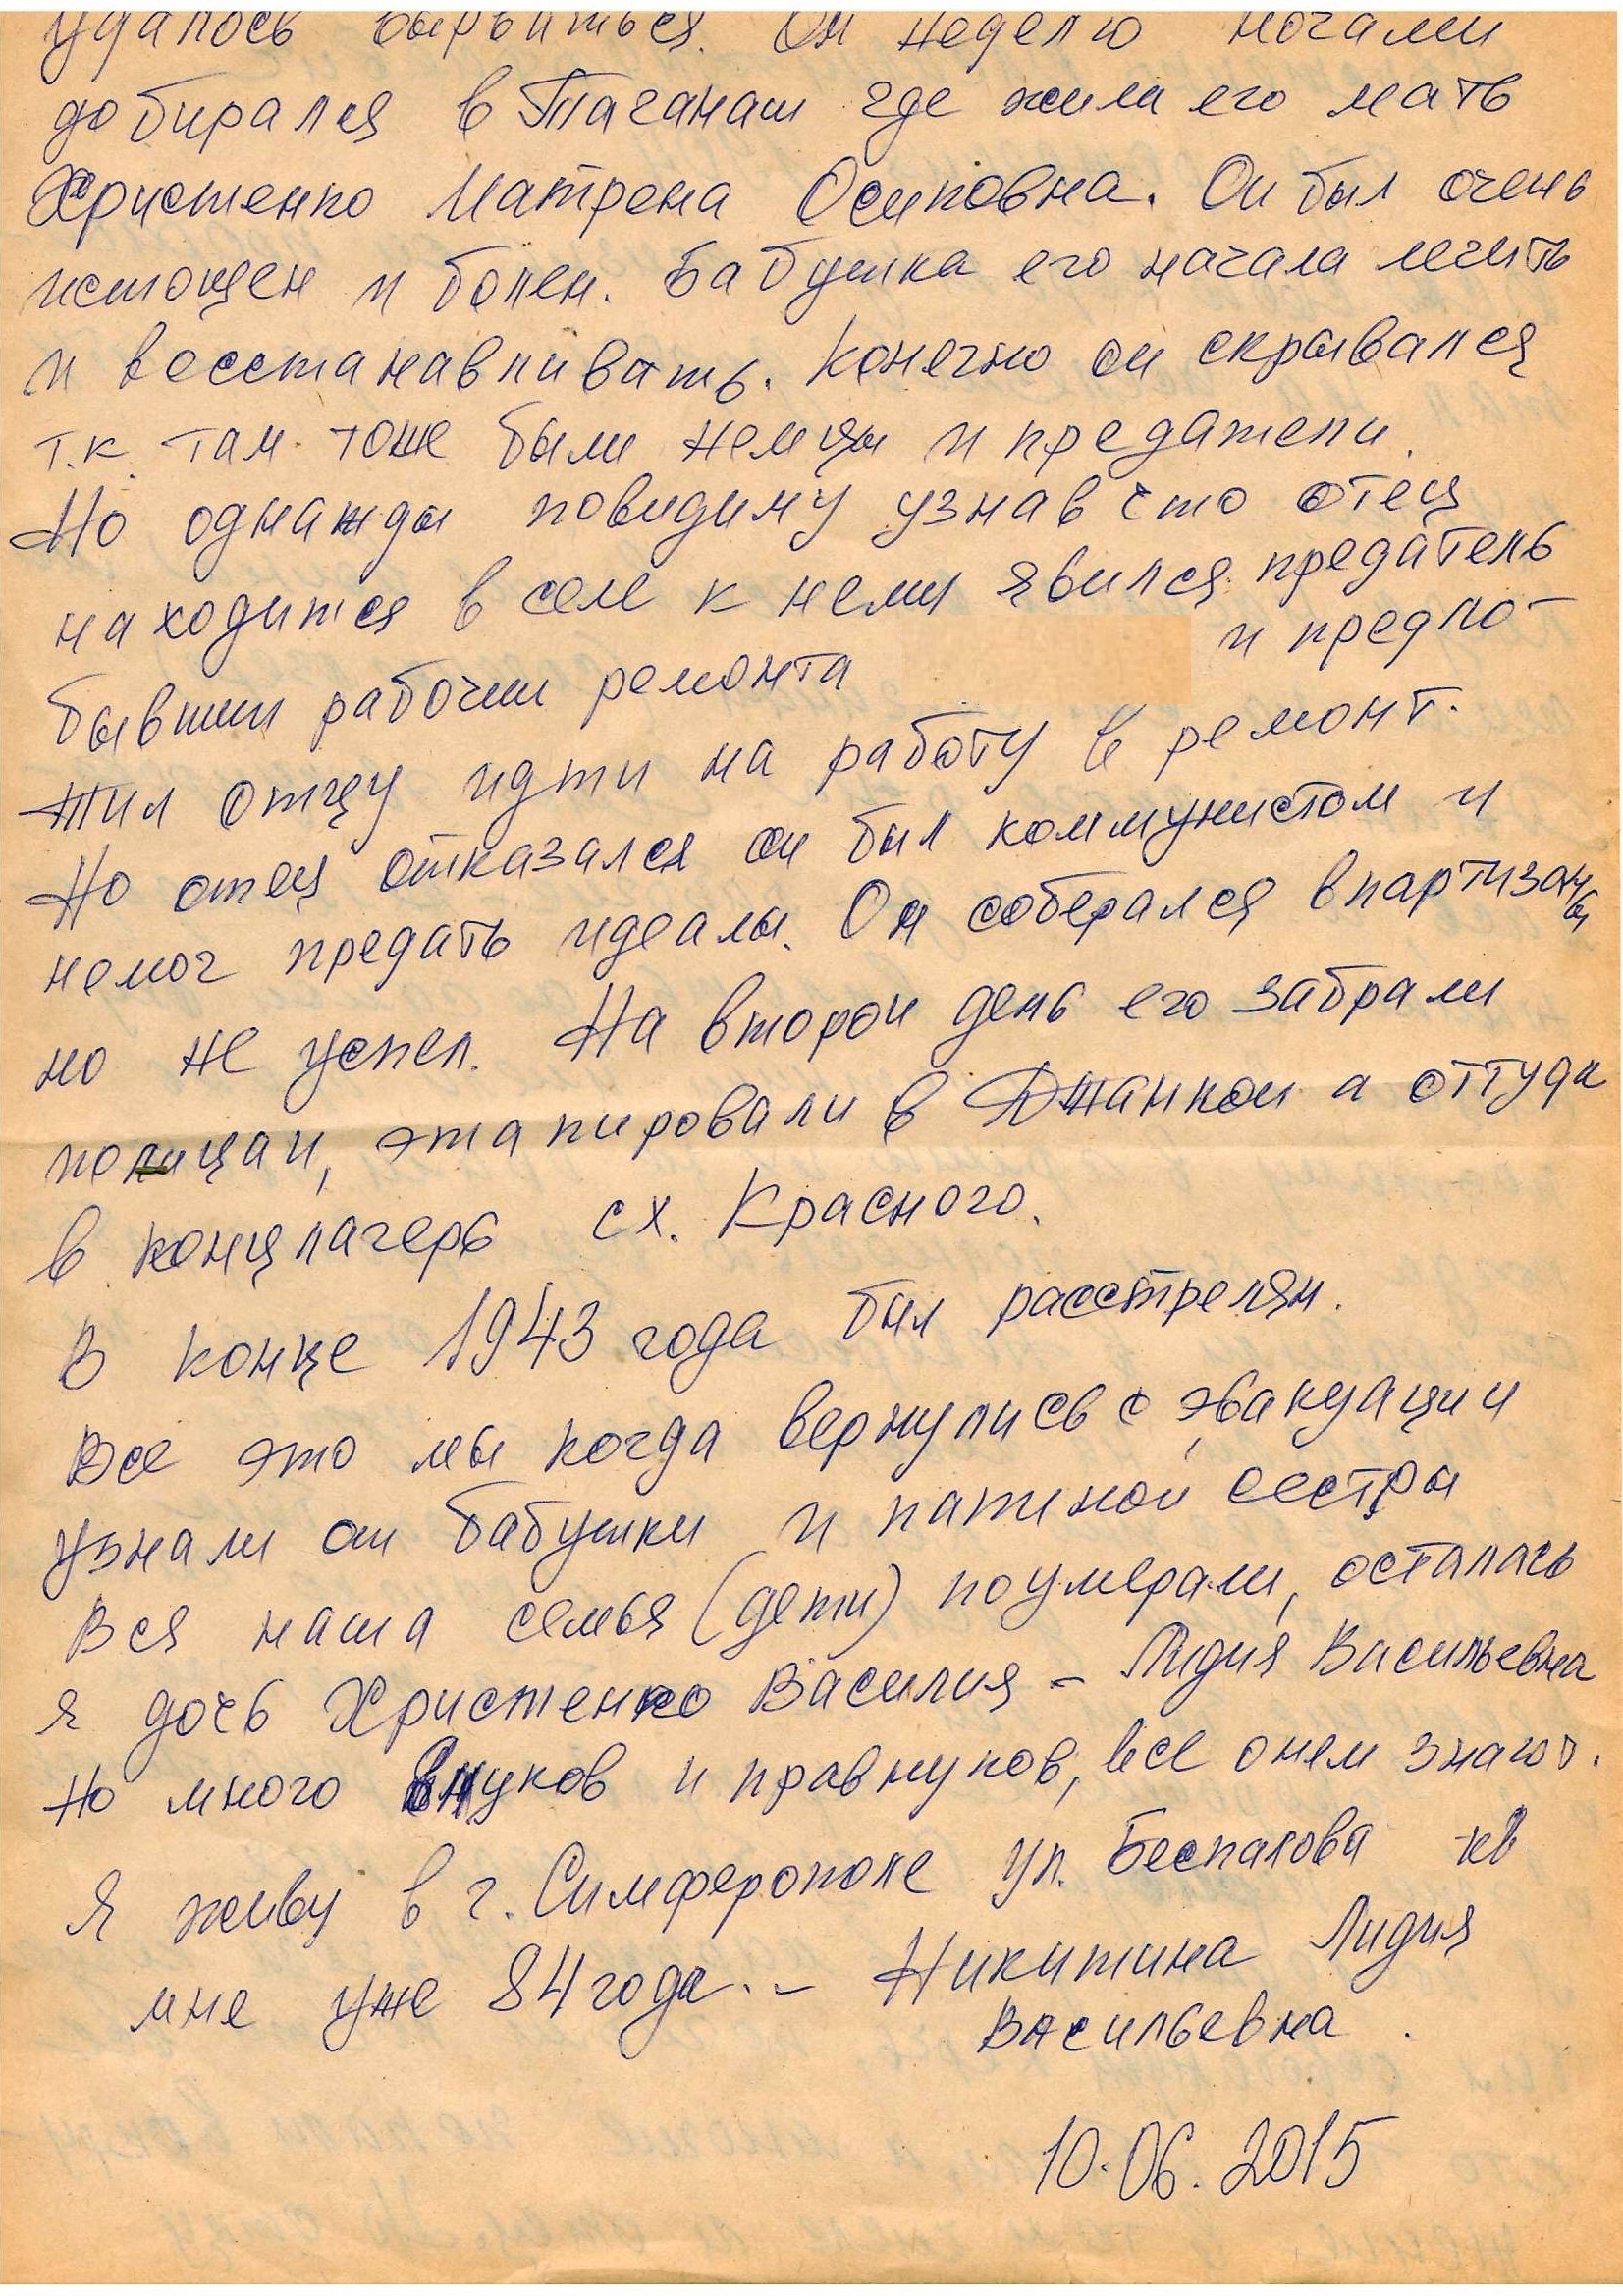 удалось вырваться. Он неделю ночами
добирался в Таганаш где жила его мать
Христенко Матрена Осиповна. Он был очень
истощен и болен. Бабушка его начала лечить
и восстанавливать. Конечно он скрывался
т.к. там тоже были немцы и предатели.
Но однажды повидиму узнав что отец
находится в селе к неми явился предатель
бывший рабочий ремонта и предло-
жил отцу идти на работу в ремонт.
Но отец отказался он был коммунистом и
немог предать идеалы. Он соберался в партизаны
но не успел. На второй день его забрали
полицаи, этапировали в Джанкой а оттуда
в концлагерь сх. Красного.
В конце 1943 года был расстрелян.
Все это мы когда вернулись с эвакуации
узнали от бабушки и папиной сестры
Вся наша семья (дети) поумерали, осталась
я дочь Христенко Василия - Лидия Васильевна
Но много внуков и правнуков, все онем знают.
Я живу в г. Симферополе ул. Беспалова кв
мне уже 84 года. - Никитина Лидия
Васильевна.
10.06.2015